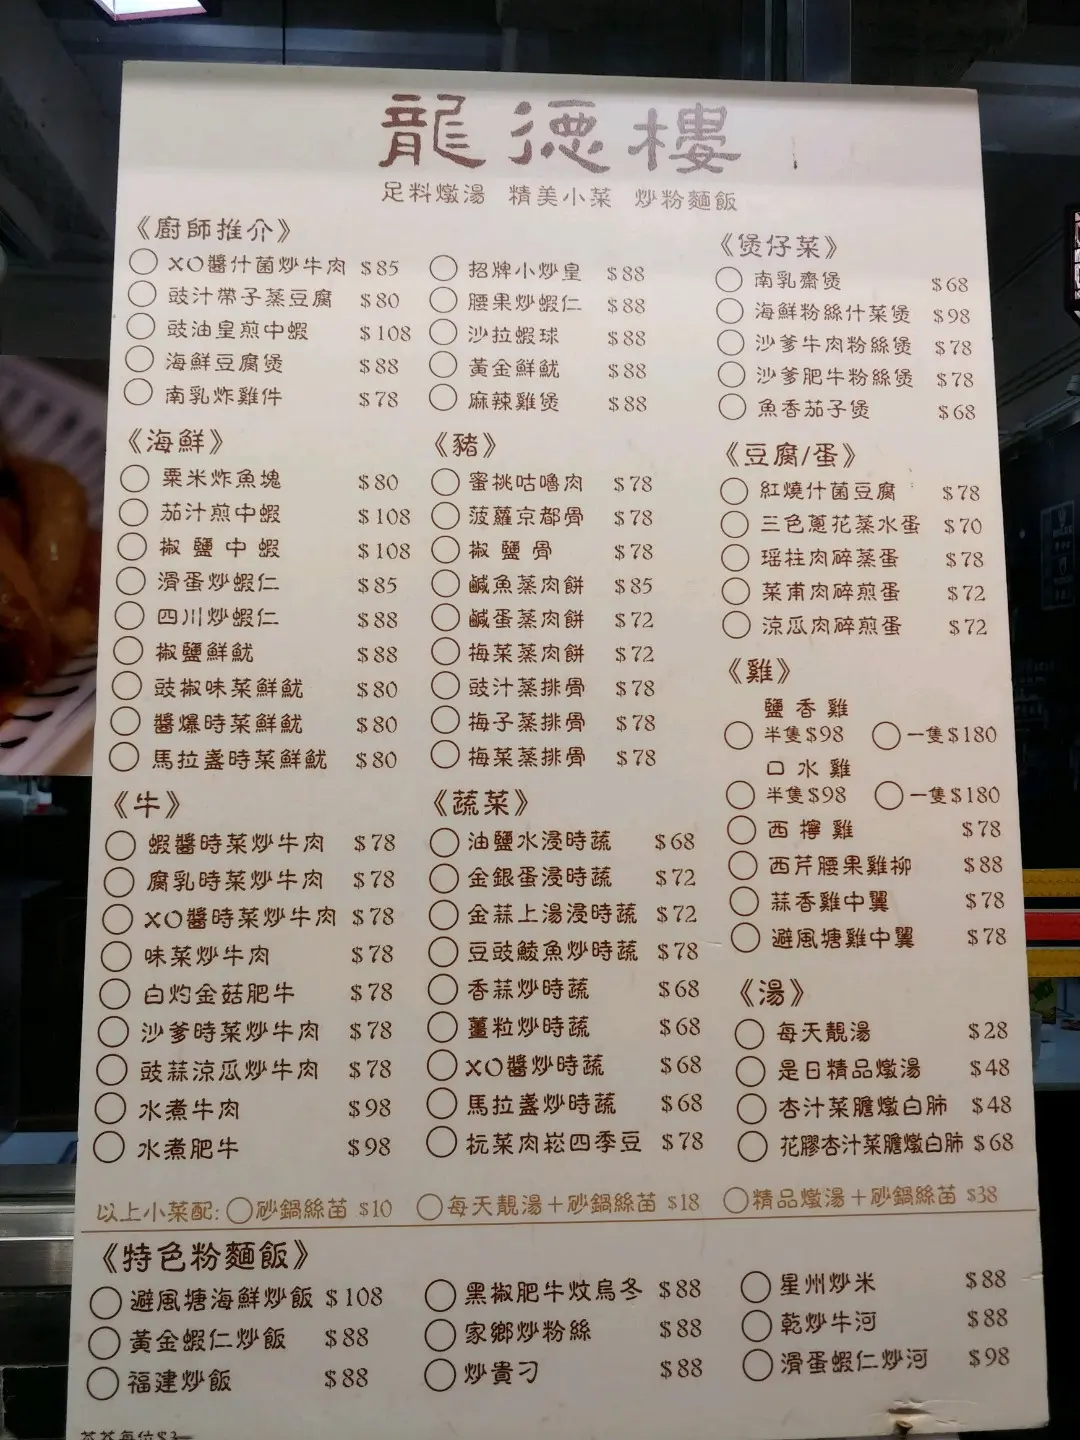 龍德樓
足料燉湯 精美小菜 炒粉麵飯
《廚師推介》
XO醬什菌炒牛肉 $85
豉汁帶子蒸豆腐 $80
豉油皇煎中蝦 $108
海鮮豆腐煲 $88
南乳炸雞件 $78
招牌小炒皇 $88
腰果炒蝦仁 $88
沙拉蝦球 $88
黃金鮮魷 $88
麻辣雞煲 $88
《海鮮》
粟米炸魚塊 $80
茄汁煎中蝦 $108
椒鹽中蝦 $108
滑蛋炒蝦仁 $85
四川炒蝦仁 $88
椒鹽鮮魷 $88
豉椒味菜鮮魷 $80
醬爆時菜鮮魷 $80
馬拉盞時菜鮮魷 $80
《豬》
蜜桃咕嚕肉 $78
菠蘿京都骨 $78
椒鹽骨 $78
鹹魚蒸肉餅 $85
鹹蛋蒸肉餅 $72
梅菜蒸肉餅 $72
豉汁蒸排骨 $78
梅子蒸排骨 $78
梅菜蒸排骨 $78
《牛》
蝦醬時菜炒牛肉 $78
腐乳時菜炒牛肉 $78
XO醬時菜炒牛肉 $78
味菜炒牛肉 $78
白灼金菇肥牛 $78
沙爹時菜炒牛肉 $78
豉蒜涼瓜炒牛肉 $78
水煮牛肉 $98
水煮肥牛 $98
《蔬菜》
油鹽水浸時蔬 $68
金銀蛋浸時蔬 $72
金蒜上湯浸時蔬 $72
豆豉鯪魚炒時蔬 $78
香蒜炒時蔬 $68
薑粒炒時蔬 $68
XO醬炒時蔬 $68
馬拉盞炒時蔬 $68
杬菜肉崧四季豆 $78
《煲仔菜》
南乳齋煲 $68
海鮮粉絲什菜煲 $98
沙爹牛肉粉絲煲 $78
沙爹肥牛粉絲煲 $78
魚香茄子煲 $68
《豆腐/蛋》
紅燒什菌豆腐 $78
三色蔥花蒸水蛋 $70
瑶柱肉碎蒸蛋 $78
菜甫肉碎煎蛋 $72
涼瓜肉碎煎蛋 $72
《雞》
鹽香雞
半隻$98 一隻$180
口水雞
半隻$98 一隻$180
西檸雞 $78
西芹腰果雞柳 $88
蒜香雞中翼 $78
避風塘雞中翼 $78
《湯》
每天靚湯 $28
是日精品燉湯 $48
杏汁菜膽燉白肺 $48
花膠杏汁菜膽燉白肺 $68
以上小菜配: 砂鍋絲苗 $10 每天靚湯+砂鍋絲苗 $18 精品燉湯+砂鍋絲苗 $38
《特色粉麵飯》
避風塘海鮮炒飯 $108
黃金蝦仁炒飯 $88
福建炒飯 $88
黑椒肥牛炆烏冬 $88
家鄉炒粉絲 $88
炒貴刁 $88
星州炒米 $88
乾炒牛河 $88
滑蛋蝦仁炒河 $98